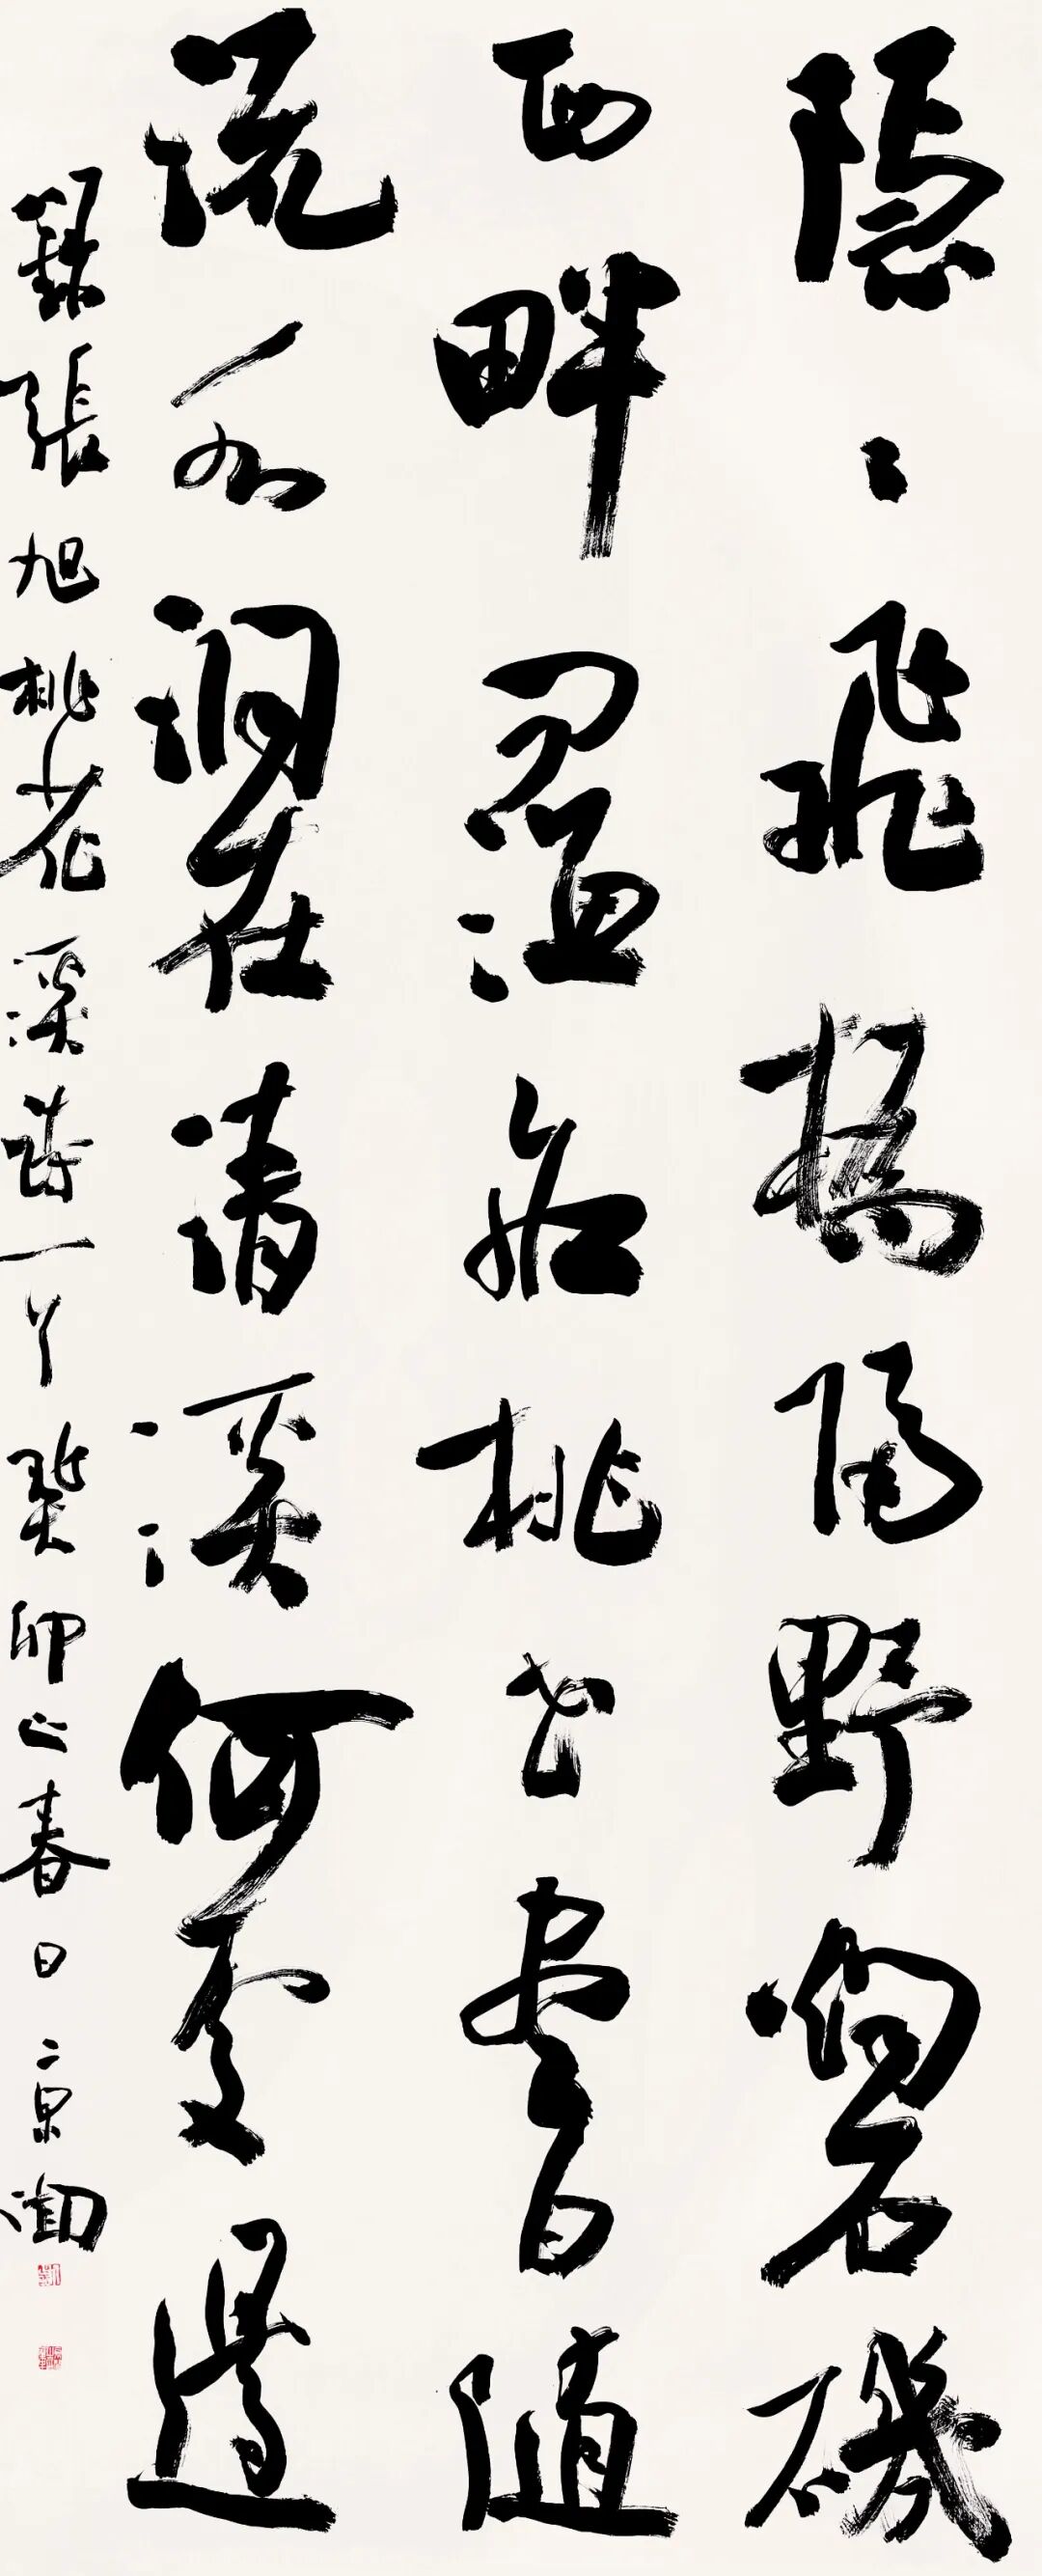 隱〻飛橋隔野烟石磯
西畔問漁船桃花盡日隨
流水洞在清溪何處邊
錄張旭桃花溪詩一首癸卯之春日